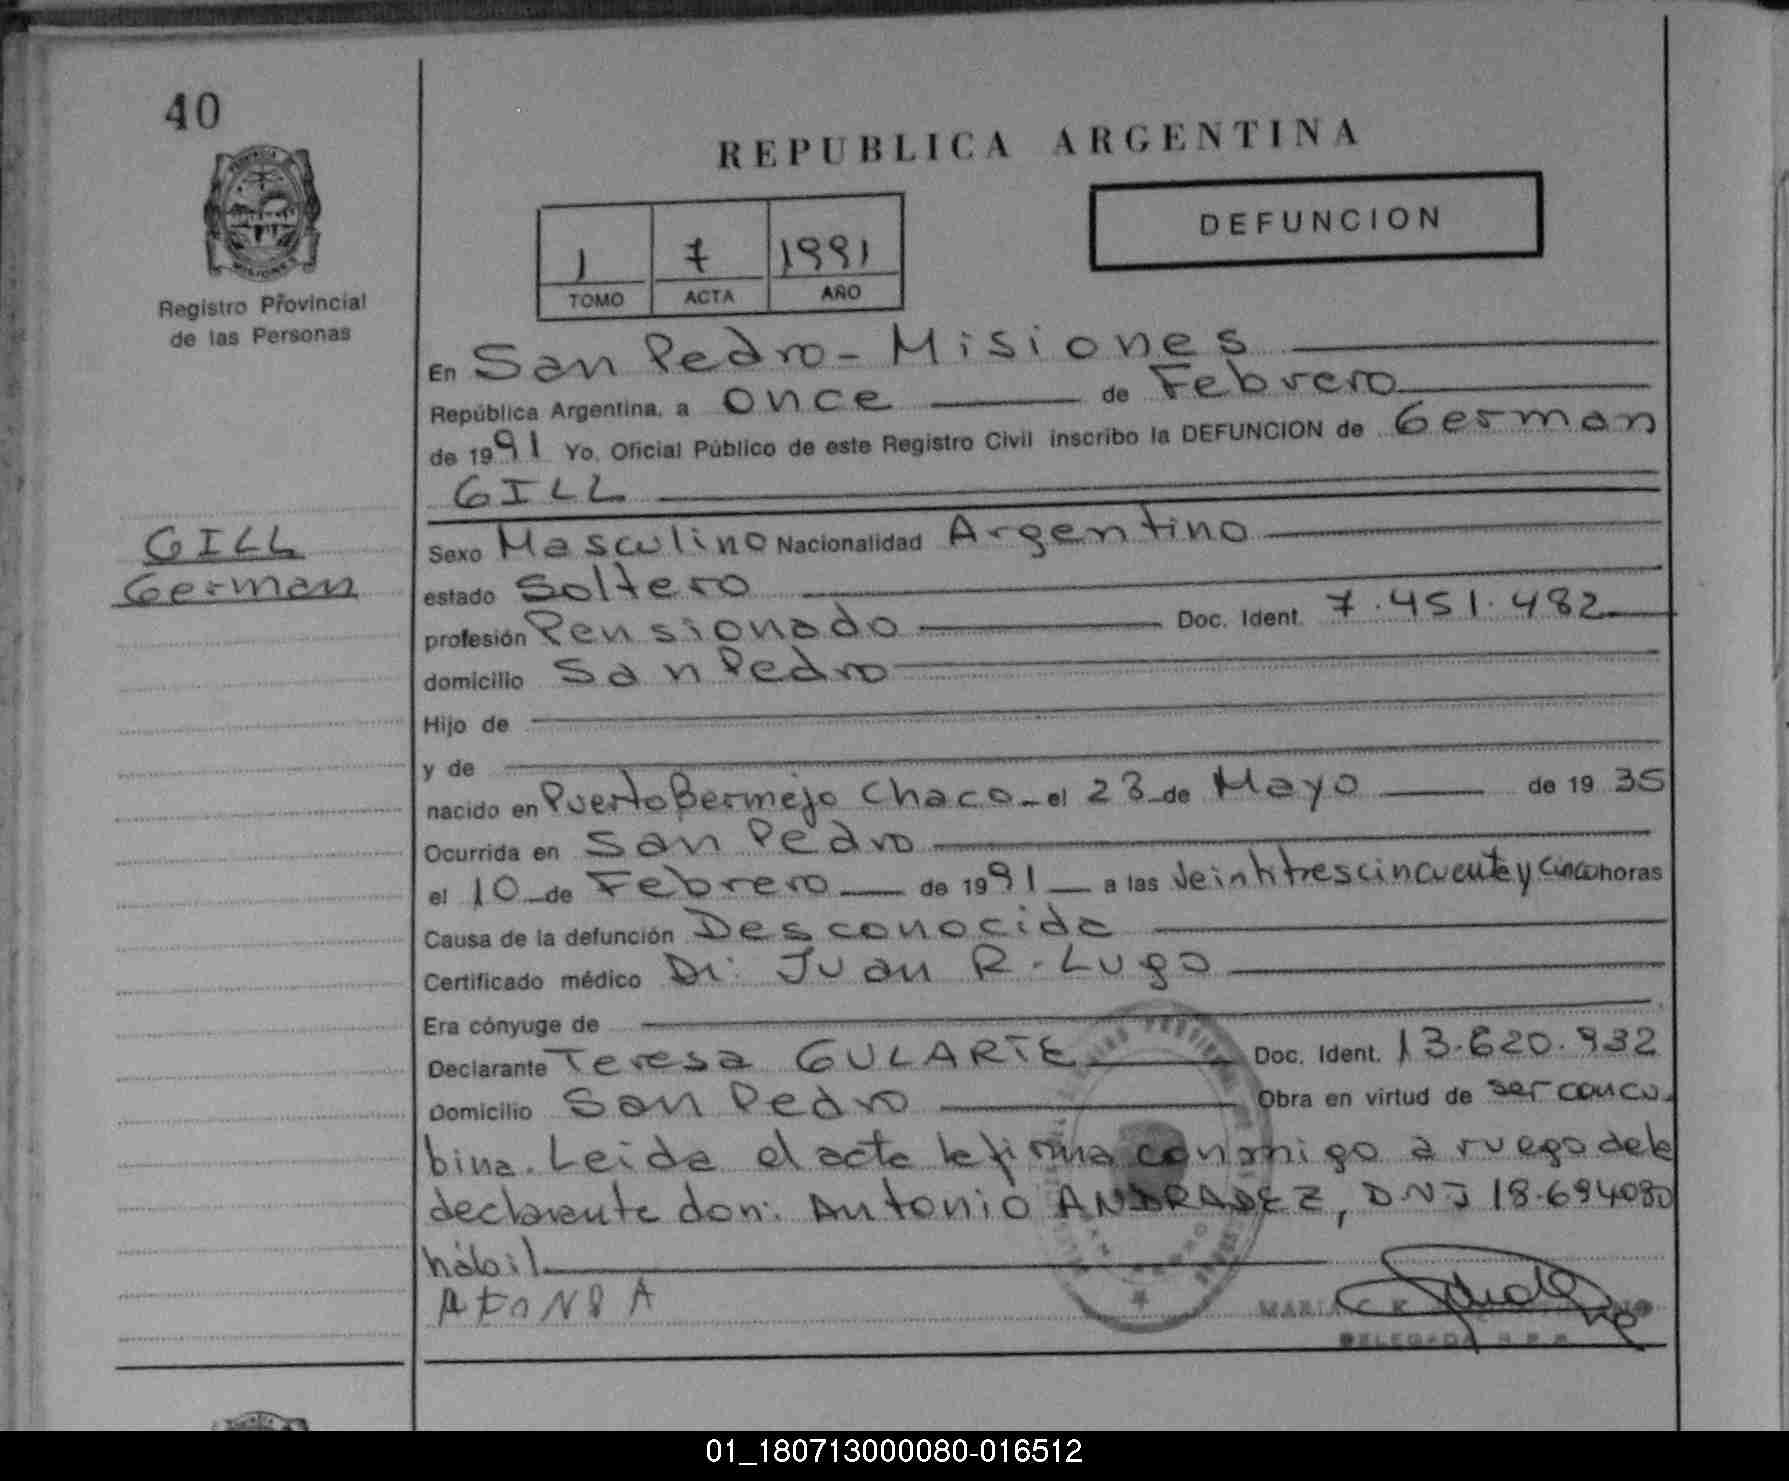 40
REPUBLICA ARGENTINA
DEFUNCION
1 7 1991
TOMO ACTA AÑO
Registro Provincial
de las Personas
En San Pedro - Misiones
República Argentina, a once de Febrero
de 1991 Yo, Oficial Público de este Registro Civil inscribo la DEFUNCION de German
GILL
GILL
German
Sexo Masculino Nacionalidad Argentino
estado Soltero
profesión Pensionado Doc. Ident. 7.451.482
domicilio San Pedro
Hijo de
y de
nacido en Puerto Bermejo Chaco el 23 de Mayo de 1935
Ocurrida en San Pedro
el 10 de Febrero de 1991 a las Veintitres cincuenta y cinco horas
Causa de la defunción Desconocida
Certificado médico Dr: Juan R. Lugo
Era cónyuge de
Declarante Teresa GULARTE Doc. Ident. 13.620.932
Domicilio San Pedro Obra en virtud de ser concu-
bina. Leida el acta la firma conmigo a ruego de la
declarante don: Antonio ANDRADEZ, DNI 18.694080
hábil
MARIA
DELEGADA
01_180713000080-016512